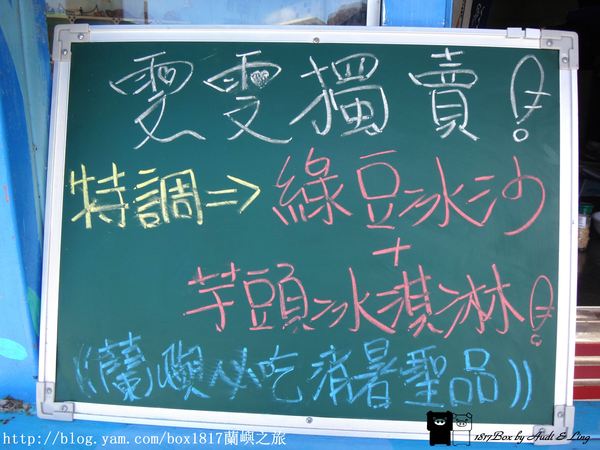 雯雯獨賣!
特調=>綠豆冰沙
+
芋頭冰淇淋!
((蘭嶼必吃消暑聖品))
http://blog.yam.com/box1817蘭嶼之旅
1817Box by Audi & Ling